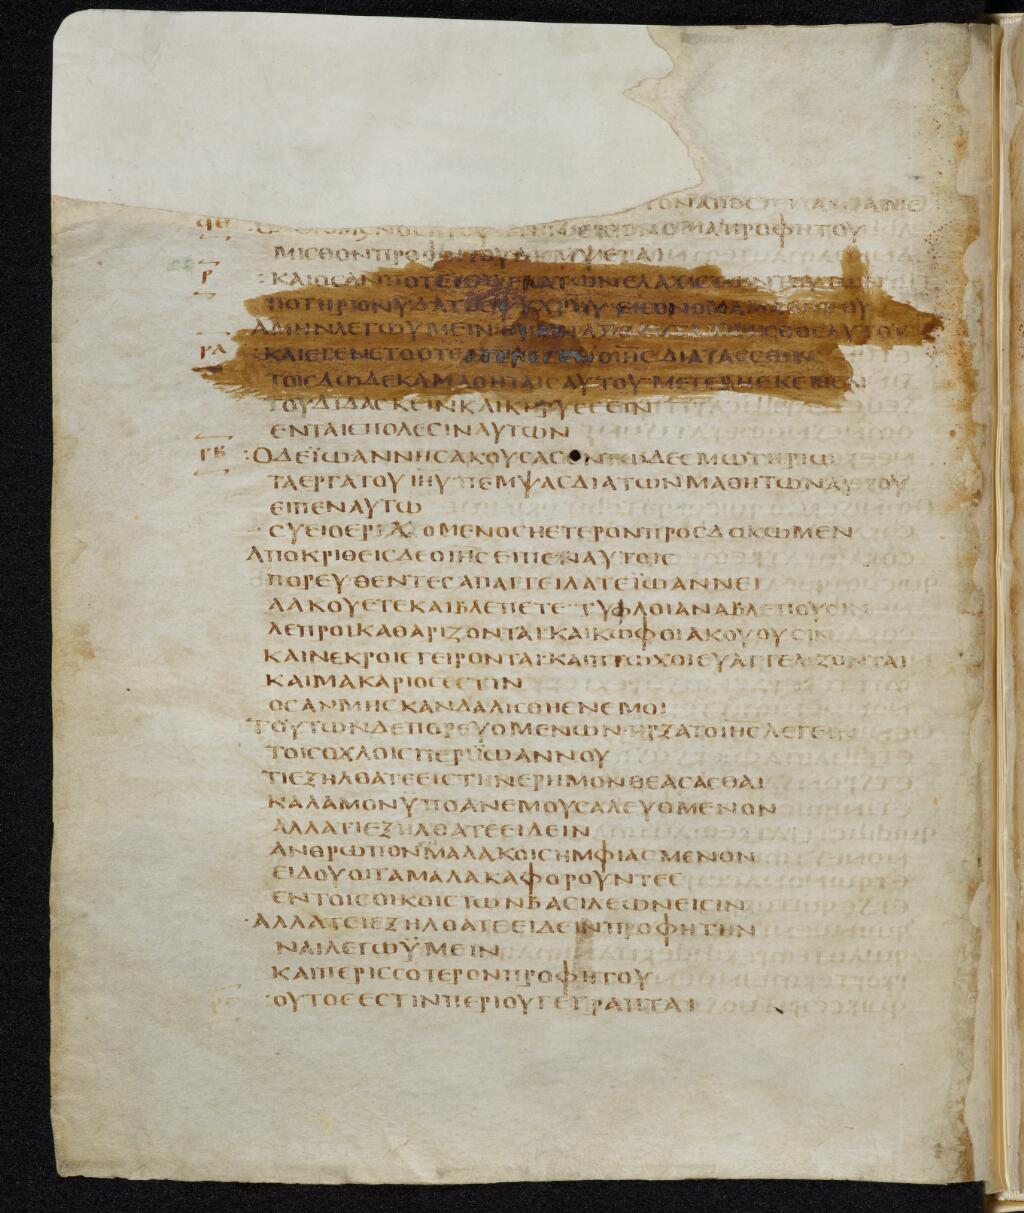 ϙθ ΠΡΟΦΗΤΟΥ
ΜΙCΘΟΝΠΡΟΦΗΤΟΥΛΗΜΨΕΤΑΙ
ρ :ΚΑΙΟCΑΝΠΟΤΕΙCΗ ΤΩΝΕΛΑΧΙCΤΩΝΤΟΥΤΩΝ
ΠΟΤΗΡΙΟΝΥΔΑΤΟC ΕΙCΟΝΟΜΑΜΑΘΗΤΟΥ
ΑΜΗΝΛΕΓΩΥΜΕΙΝ ΑΥΤΟΥ
ρα :ΚΑΙΕΓΕΝΕΤΟΟΤΕ ΟΙΗCΔΙΑΤΑCCΕΙΝ
ΤΟΙCΔΩΔΕΚΑΜΑΘΗΤΑΙCΑΥΤΟΥΜΕΤΕΒΗΕΚΕΙΘΕΝ
ΤΟΥΔΙΔΑCΚΕΙΝΚΑΙΚΗΡΥCCΕΙΝ
ΕΝΤΑΙCΠΟΛΕCΙΝΑΥΤΩΝ
ρβ :ΟΔΕΪΩΑΝΝΗCΑΚΟΥCΑCΕΝΤΩΔΕCΜΩΤΗΡΙΩ
ΤΑΕΡΓΑΤΟΥΙΗΥΠΕΜΨΑCΔΙΑΤΩΝΜΑΘΗΤΩΝΑΥΤΟΥ
ΕΙΠΕΝΑΥΤΩ
CΥΕΙΟΕΡΧΟΜΕΝΟCΗΕΤΕΡΟΝΠΡΟCΔΟΚΩΜΕΝ
ΑΠΟΚΡΙΘΕΙCΔΕΟΙΗCΕΙΠΕΝΑΥΤΟΙC
ΠΟΡΕΥΘΕΝΤΕCΑΠΑΓΓΕΙΛΑΤΕΪΩΑΝΝΕΙ
ΑΑΚΟΥΕΤΕΚΑΙΒΛΕΠΕΤΕ·ΤΥΦΛΟΙΑΝΑΒΛΕΠΟΥCΙΝ
ΛΕΠΡΟΙΚΑΘΑΡΙΖΟΝΤΑΙ·ΚΑΙΚΩΦΟΙΑΚΟΥΟΥCΙΝ
ΚΑΙΝΕΚΡΟΙΕΓΕΙΡΟΝΤΑΙ·ΚΑΙΠΤΩΧΟΙΕΥΑΓΓΕΛΙΖΟΝΤΑΙ
ΚΑΙΜΑΚΑΡΙΟCΕCΤΙΝ
ΟCΑΝΜΗCΚΑΝΔΑΛΙCΘΗΕΝΕΜΟΙ
ΤΟΥΤΩΝΔΕΠΟΡΕΥΟΜΕΝΩΝ·ΗΡΞΑΤΟΙΗCΛΕΓΕΙΝ
ΤΟΙCΟΧΛΟΙCΠΕΡΙΪΩΑΝΝΟΥ
ΤΙΕΞΗΛΘΑΤΕΕΙCΤΗΝΕΡΗΜΟΝΘΕΑCΑCΘΑΙ
ΚΑΛΑΜΟΝΥΠΟΑΝΕΜΟΥCΑΛΕΥΟΜΕΝΟΝ
ΑΛΛΑΤΙΕΞΗΛΘΑΤΕΕΙΔΕΙΝ
ΑΝΘΡΩΠΟΝΜΑΛΑΚΟΙCΗΜΦΙΑCΜΕΝΟΝ
ΕΙΔΟΥΟΙΤΑΜΑΛΑΚΑΦΟΡΟΥΝΤΕC
ΕΝΤΟΙCΟΙΚΟΙCΤΩΝΒΑCΙΛΕΩΝΕΙCΙΝ
·ΑΛΛΑΤΙΕΞΗΛΘΑΤΕΕΙΔΕΙΝΠΡΟΦΗΤΗΝ
ΝΑΙΛΕΓΩΫΜΕΙΝ
ΚΑΙΠΕΡΙCCΟΤΕΡΟΝΠΡΟΦΗΤΟΥ
:ΟΥΤΟCΕCΤΙΝΠΕΡΙΟΥΓΕΓΡΑΠΤΑΙ